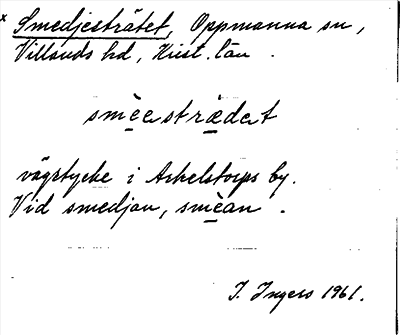 x Smedjesträtet, Oppmanna sn,
Villands hd, Krist. län.
smèesträdet
vägstycke i Arkelstorps by.
Vid smedjan, smèan.
I. Ingers 1961.